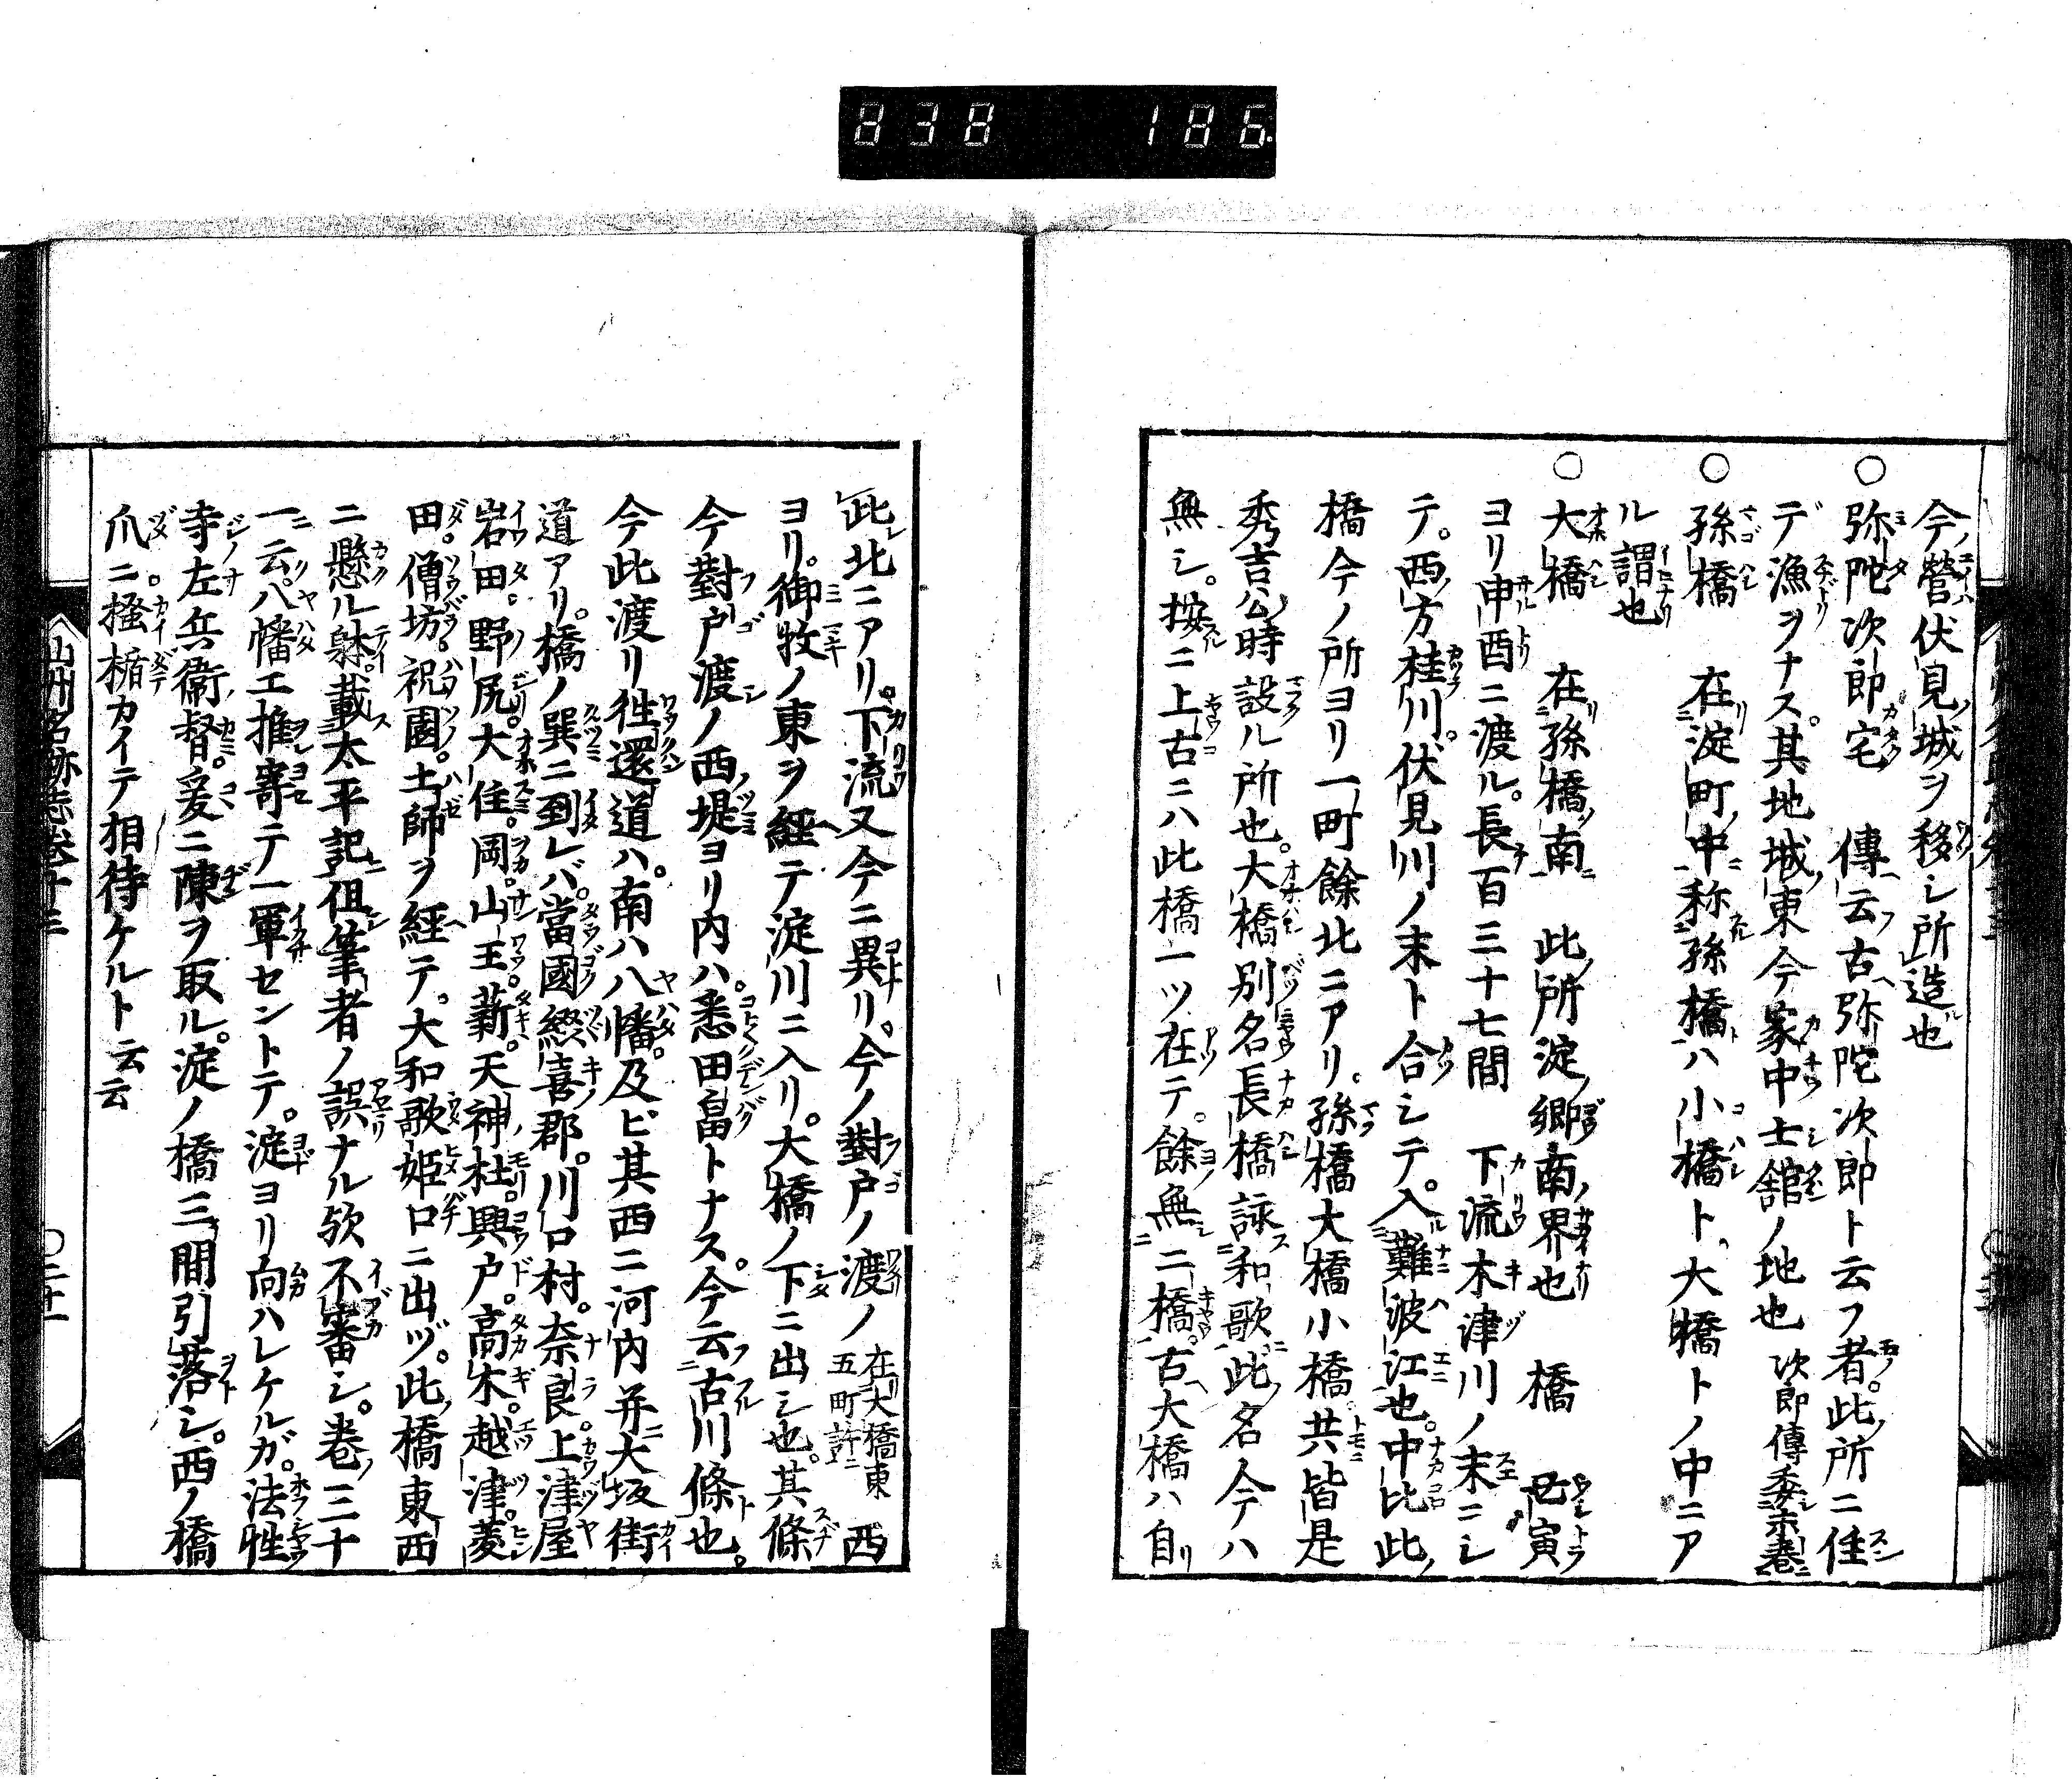 838 186
今営伏見城ヲ移シ所造也
○弥陀次郎宅 傳云古弥陀次郎ト云フ者此所ニ住
デ漁ヲナス。其地城東今家中士舘ノ地也 次郎傳委示巻
○孫橋 在淀町中称孫橋ハ小橋ト大橋トノ中ニア
ル謂也
○大橋 在孫橋南 此所淀郷南界也 橋 丑寅
ヨリ申酉ニ渡ル。長百三十七間 下流木津川ノ末ニシ
テ。西方桂川。伏見川ノ末ト合シテ。入難波江也。中比此
橋今ノ所ヨリ一町餘北ニアリ。孫橋大橋小橋共皆是
秀吉公時設ル所也。大橋別名長橋詠和歌此名今ハ
無シ。按ニ上古ニハ此橋一ツ在テ。餘無二橋。古大橋ハ自
此北ニアリ。下流又今ニ異リ。今ノ對戸ノ渡ノ 在大橋東五町許 西
ヨリ。御牧ノ東ヲ経テ淀川ニ入リ。大橋ノ下ニ出シ也。其條
今對戸渡ノ西堤ヨリ内ハ。悉田畠トナス。今云古川條也。
今此渡リ徃還道ハ。南ハ八幡。及ビ其西ニ河内并大坂街
道アリ。橋ノ巽ニ到レバ。當國綴喜郡。川口村。奈良。上津屋
岩田。野尻。大住。岡。山王。薪。天神杜。興戸。高木。越津。菱
田。僧坊。祝園。土師ヲ経テ。大和歌姫口ニ出ヅ。此橋東西
ニ懸ル躰。載太平記但筆者ノ誤ナル欤不審シ。巻三十
一云。八幡エ推寄テ一軍セントテ。淀ヨリ向ハレケルガ。法性
寺左兵衛督。爰ニ陳ヲ取ル。淀ノ橋三間引落シ。西ノ橋
爪ニ掻楯カイテ相待ケルト云云
山州名跡志巻十三